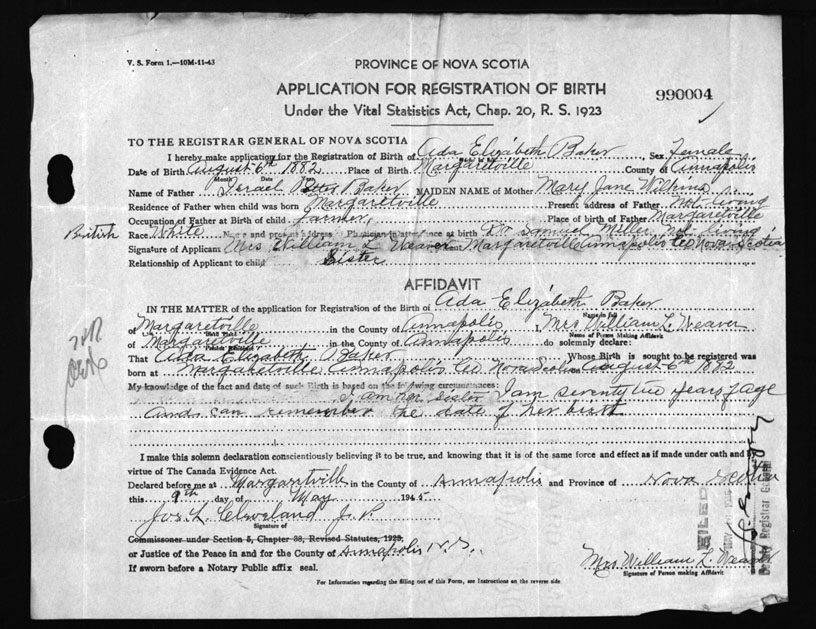 V. S. Form 1.—10M-11-43
PROVINCE OF NOVA SCOTIA
APPLICATION FOR REGISTRATION OF BIRTH
990004
Under the Vital Statistics Act, Chap. 20, R. S. 1923
TO THE REGISTRAR GENERAL OF NOVA SCOTIA
I hereby make application for Registration of Birth of Ada Elizabeth Baker, Sex Female
Date of Birth August 6th 1882 Place of Birth Margaretville County of Annapolis
Month Date Year
Name of Father Israel Potter Baker MAIDEN NAME of Mother Mary Jane Wilkins
Residence of Father when child was born Margaretville Present address of Father Not living
Occupation of Father at Birth of child farmer Place of birth of Father Margaretville
British Race White Name and present address Physician in attendance at birth Dr Samuel Miller, not living
Signature of Applicant Mrs William L Weaver Margaretville Annapolis Co Nova Scotia
Relationship of Applicant to child Sister
AFFIDAVIT
IN THE MATTER of the application for Registration of the Birth of Ada Elizabeth Baker
Name in full
of Margaretville in the County of Annapolis, Mrs William L. Weaver
Birth Place Name of Person Making Affidavit
of Margaretville in the County of Annapolis do solemnly declare:
Present Residence
That Ada Elizabeth Baker Whose Birth is sought to be registered was
born at Margaretville Annapolis Co Nova Scotia August 6th 1882
My knowledge of the fact and date of such Birth is based on the following circumstances:
I am her sister I am seventy two years of age
and can remember the date of her birth
I make this solemn declaration conscientiously believing it to be true, and knowing that it is of the same force and effect as if made under oath and by
virtue of The Canada Evidence Act.
Declared before me at Margaretville in the County of Annapolis and Province of Nova Scotia
this 9th day of May 1945
Jos. L. Cleveland J. P.
Signature of
Commissioner under Section 5, Chapter 38, Revised Statutes, 1923,
or Justice of the Peace in and for the County of Annapolis N. S.
If sworn before a Notary Public affix seal.
Mrs William L. Weaver
Signature of Person making Affidavit
For Information regarding the filling out of this Form, see Instructions on the reverse side
FILED
Deputy Registrar General